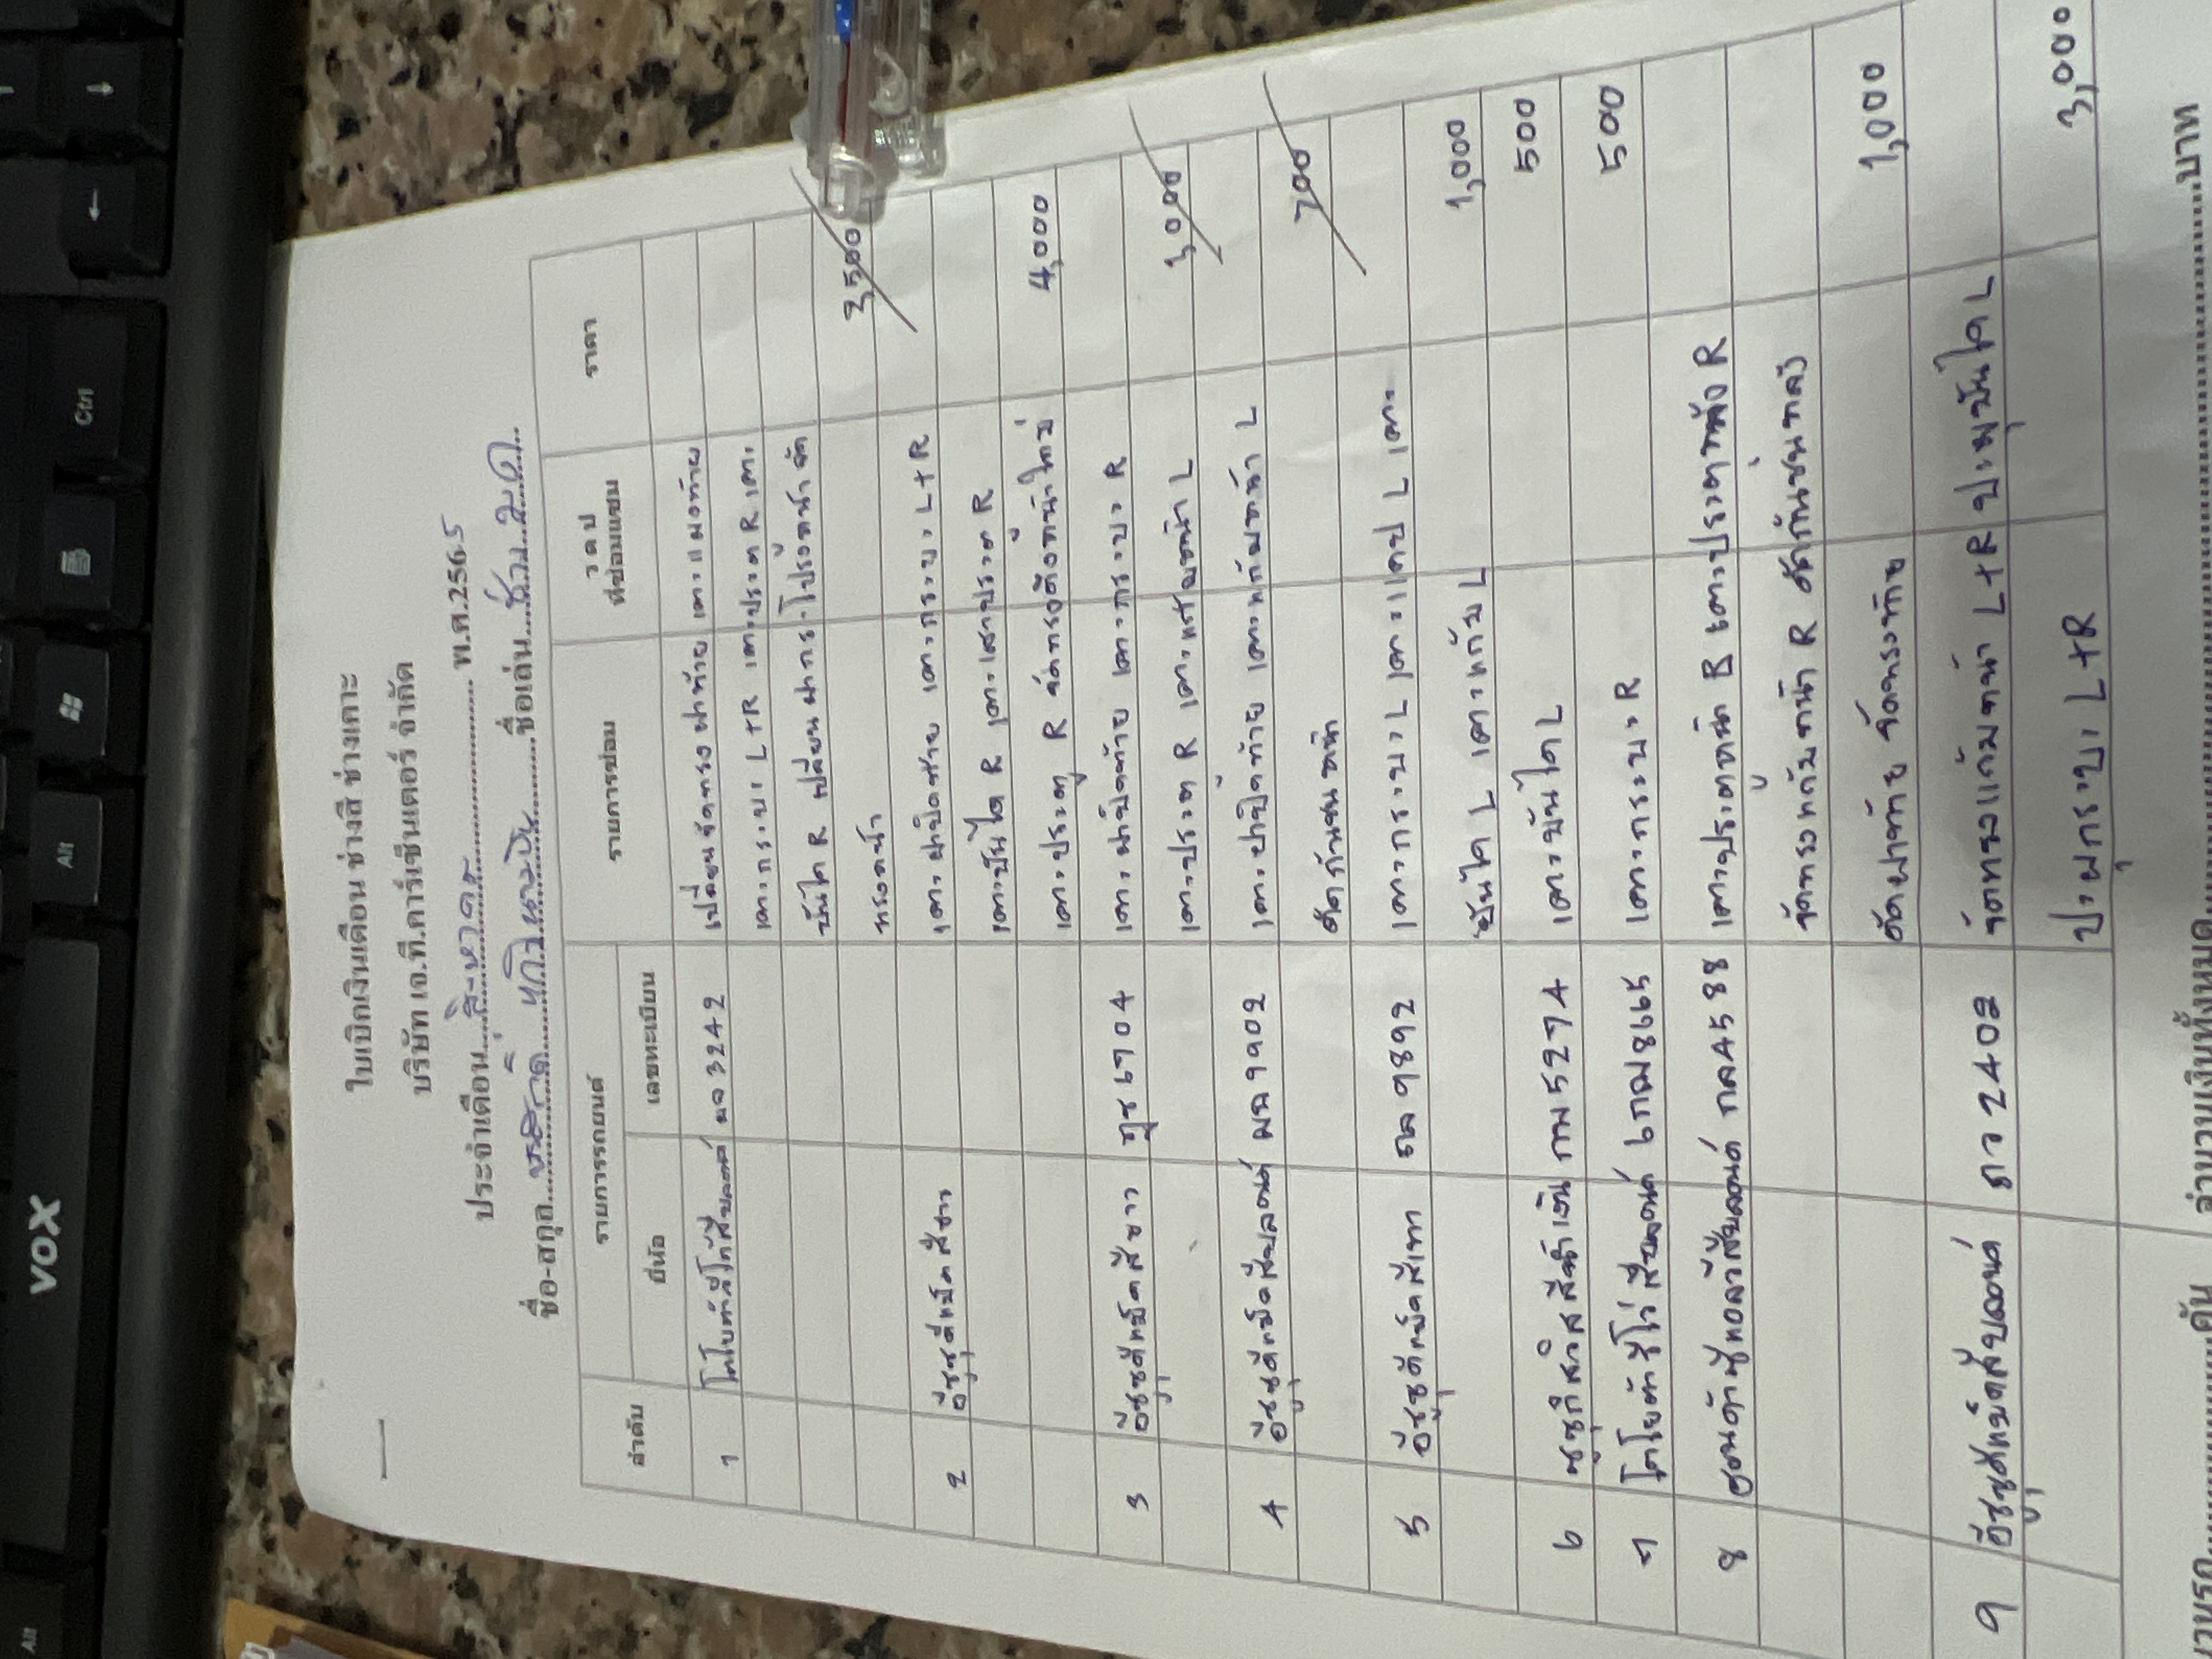 ใบเบิกเงินเดือน ช่างสี ช่างเคาะ
บริษัท เจ.ที.คาร์เซ็นเตอร์ จำกัด
ประจำเดือน สิงหาคม พ.ศ.2565
ชื่อ-สกุล ชื่อเล่น
ลำดับ รายการรถยนต์ รายการซ่อม ว ด ป ที่ซ่อมแซม ราคา
ยี่ห้อ เลขทะเบียน
1 3242 เปลี่ยน จัดทรง ฝาท้าย เคาะ แผงท้าย
เคาะ กระบะ L+R เคาะ ประตู R เคาะ
บันได R เปลี่ยน ฝากระโปรงหน้า จัด
ทรงหน้า 3,500
2 อีซูซุดีแม็คสีขาว เคาะ ฝาปิดท้าย เคาะ กระบะ L+R
เคาะ บันได R เคาะ เสาประตู R
เคาะ ประตู R จัดทรงคัสซีหน้าใหม่ 4,000
3 อีซูซุดีแม็คสีขาว 6704 เคาะ ฝาปิดท้าย เคาะ กระบะ R
เคาะ ประตู R เคาะ แก้มหน้า L 1,000
4 อีซูซุดีแม็คสีบลอนด์ 9902 เคาะ ฝาปิดท้าย เคาะ แก้มหน้า L
ดัดกันชนหน้า 700
5 อีซูซุดีแม็คสีเทา 9892 เคาะ กระบะ L เคาะ แคป L เคาะ
บันได L เคาะ แก้ม L 1,000
6 ซูซูกิสวิสสีน้ำเงิน กม 5274 เคาะ บันได L 500
7 โตโยต้ารีโว่สีบลอนด์ 6กฌ 8665 เคาะ กระบะ R 500
8 ฮอนด้าซีทอลวีสีบลอนด์ กล 4588 เคาะประตูหน้า R เคาะประตูหลัง R
จัดทรงแก้มหน้า R ดัดกันชนหลัง
ดัดฝาท้าย จัดทรงท้าย 1,000
9 อีซูซุดีแม็คสีบลอนด์ 2402 จัดทรงแก้มหน้า L+R ปะผุบันได L
ปะผุกระบะ L+R 3,000
คัน จำนวนเงินทั้งหมด บาท
VOX
Alt
Alt
Ctrl